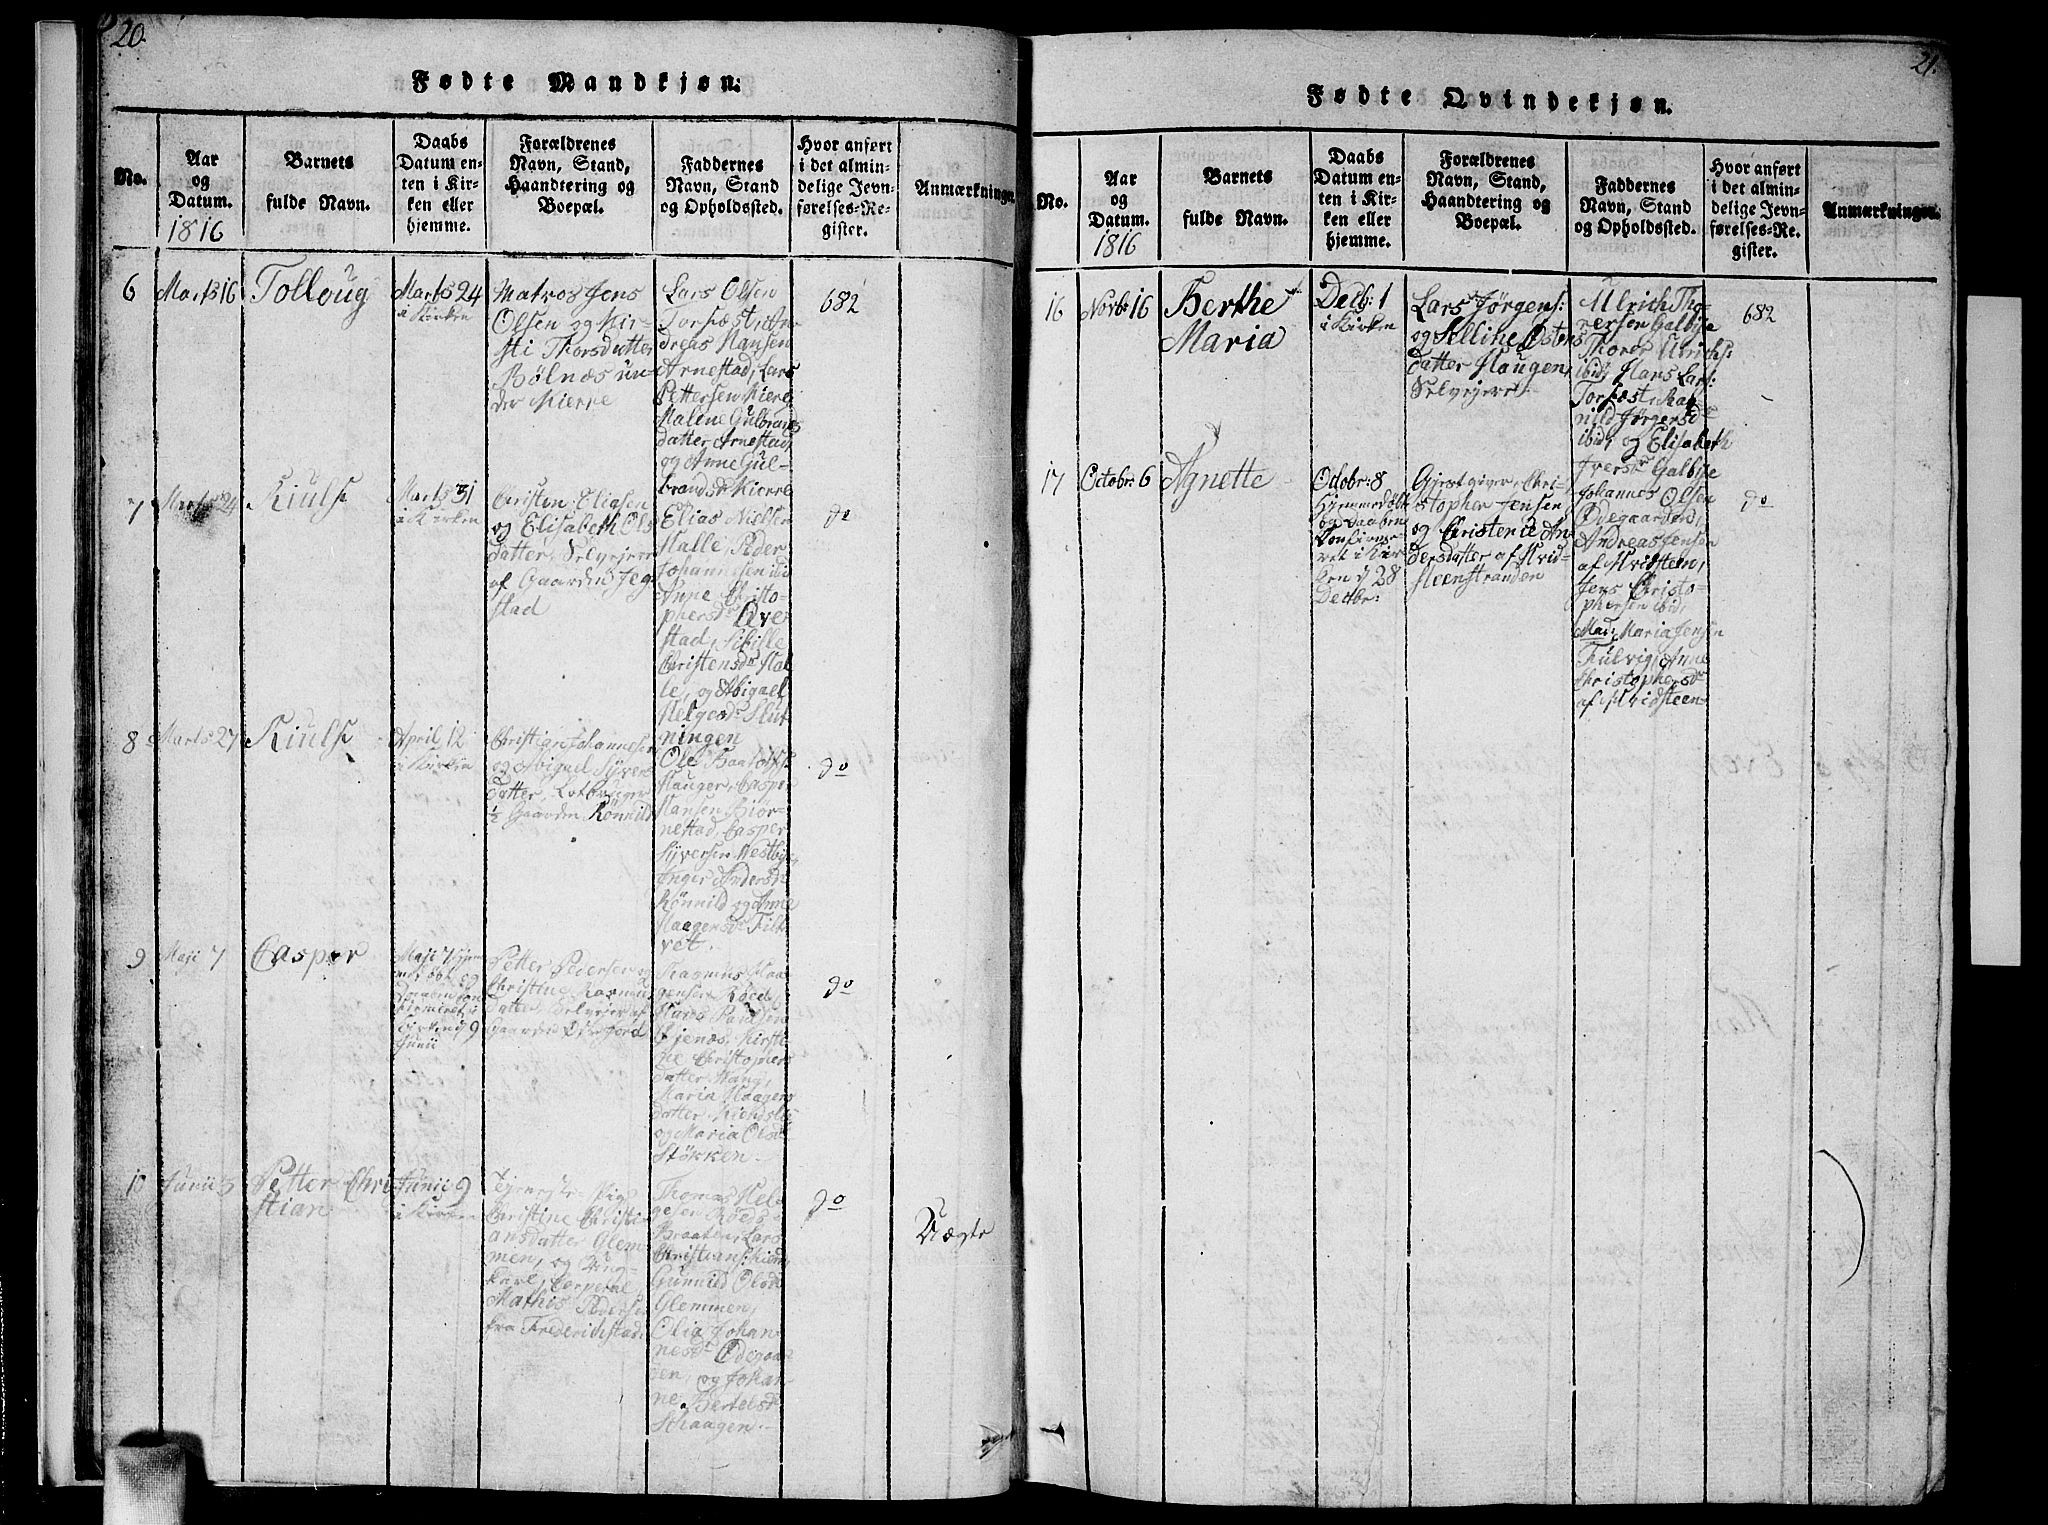 20.
Fødte Mandkjøn.
No.
Aar
og
Datum.
1816
Barnets
fulde Navn.
Daabs
Datum en-
ten i Kir-
ken eller
hjemme.
Forældrenes
Navn, Stand,
Haandtering og
Boepæl.
Faddernes
Navn, Stand
og Opholdssted.
Hvor anført
i det almin-
delige Jevn-
førelses-Re-
gister.
Anmærkninger.
6
Marts 16
Tolloug
Marts 24
i Kirken
Matros Jens
Olsen og Kir-
sti Thorsdatter
Bølnæs un-
der Kierre
Lars Olsen
Torfæst, An-
dreas Hansen
Arnestad, Lars
Pettersen Kiere
Malene Gulbrands
datter Arnestad,
og Anne Gul-
brandsdr Kierre
682
7
Marts 24
Kiulse
Marts 31
i Kirken
Christen Eliasen
og Elisabeth Ols
datter, Selveiere
af Gaarden Jeg-
stad
Elias Nielsen
Halle, Peder
Johannesen ibid
Anne Christo-
phersdr Qve-
stad, Sibille
Christensdr Hal-
le, og Abigael
Helgesdr Slut-
ningen
do
8
Marts 27
Kiulse
April 12
i Kirken
Christian Johannesen
og Abigael Syvers
datter,
1/2 Gaarden Rønnild
Ole
Hauger, Casper
Hansen Biør-
nestad, Casper
Syversen Westbye,
Inger Andersdr
Rønnild og Anne
Haagensdr Filt-
vet.
do
9
Maji 7
Casper
Maji 7 hjem-
medøbt og
Daaben con-
firmeret i
Kirken d 9
Junii
Petter Pedersen og
Christine Rasmus
datter, Selveier af
Gaarden
Rasmus Haa-
gensen Røed,
Hans Paulsen
Kirsti-
ne Christophers
datter Wang,
Maria Haagens
datter
og Maria Olsdr
Støkken
do
10
Junii 3
Petter Chri-
stian
Junii 9
i Kirken
Tjeneste-Pige
Christine Christi-
ansdatter Glem-
men, og Ung-
karl, Corporal
Mathis Pedersen
fra Frederichstad.
Thomas Hel-
gesen Røeds-
Braaten, Lars
Christians:
Gunnild Olsdr
Glemmen,
Olia Johan-
nesdr Ødegaar-
den, og Johan-
ne Bertelsdr
Skaagen.
do
Uægte
21.
Fødte Qvindekjøn.
No.
Aar
og
Datum.
1816
Barnets
fulde Navn.
Daabs
Datum en-
ten i Kir-
ken eller
hjemme.
Forældrenes
Navn, Stand,
Haandtering og
Boepæl.
Faddernes
Navn, Stand
og Opholdssted.
Hvor anført
i det almin-
delige Jevn-
førelses-Re-
gister.
Anmærkninger.
16
Novbr 16
Berthe
Maria
Decb: 1
i Kirken
Lars Jørgens:
og Selline Ostens
datter Haugen,
Selveiere
Ulrich Tho-
rersen Galbye
Thorer Ulrichs:
ibid, Hans Lars:
Torfæst, Rag-
nild Jørgensdr
ibid, og Elisabeth
Iversdr Galbye
682
17
Octobr: 6
Agnette
Octobr: 8
hjemmedøbt
og Daaben
Confirme-
ret i Kir-
ken d 28
Decbr:
Gjestgiver, Chri-
stopher Jensen
og Christence An-
dersdatter af Hvid-
steenstranden
Johannes Olsen
Ødegaarden,
Andreas Jensen
af Hvidsteen,
Jens Christo-
phersen ibid,
Mad: Maria Jensen
Fulvig, Anne
Christophersdr
af Hvidsteen
do